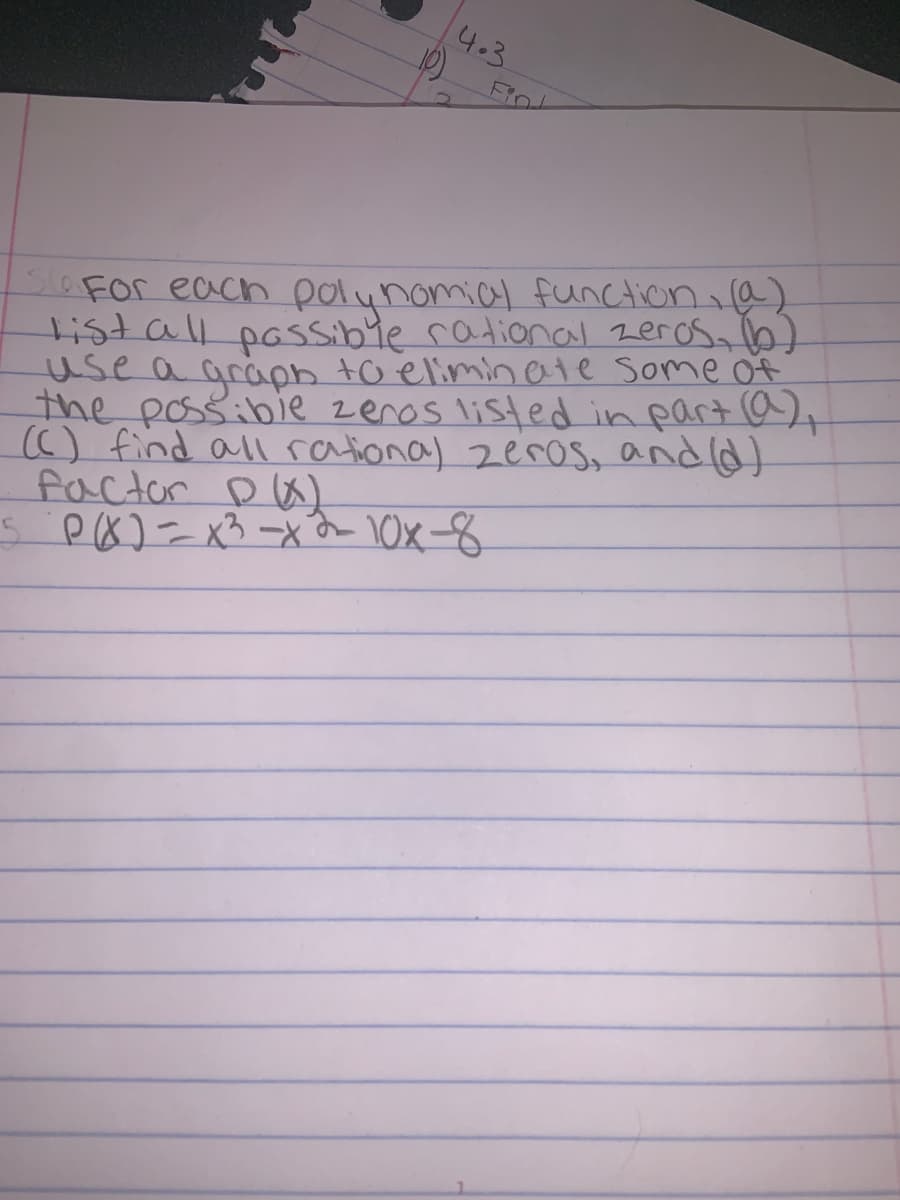 4.3
10)
For each polynomial function, (a)
list all possible rational zeros, (b)
use a graph to eliminate some of
the possible zeros listed in part (a),
(c) find all rational zeros, and (d)
factor P(x)
P(x) = x³ - x² - 10x - 8